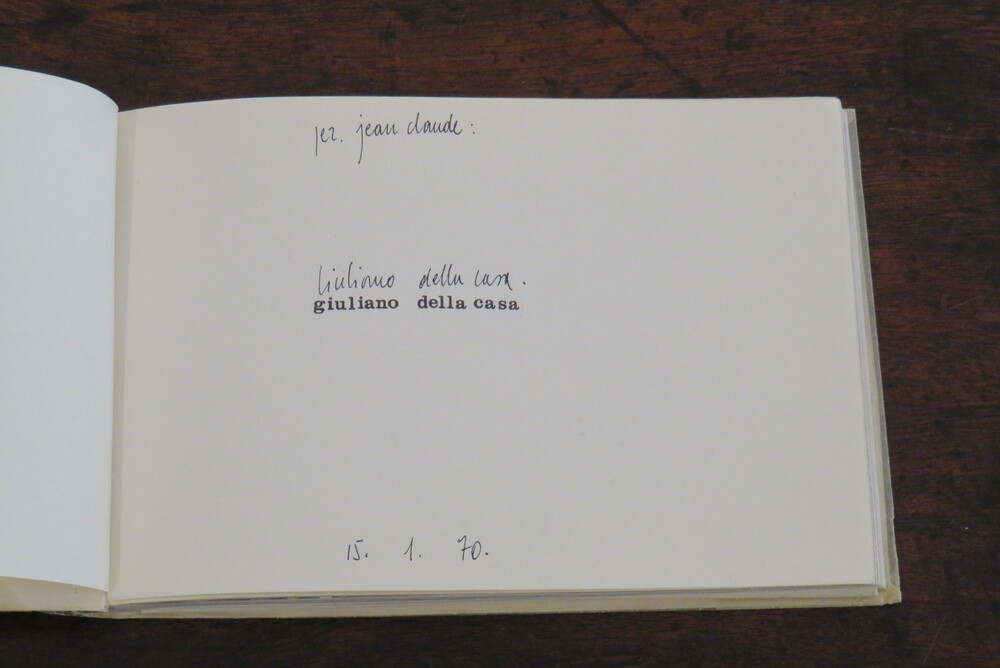 per. jean claude:
Giuliano della casa.
giuliano della casa
15. 1. 70.